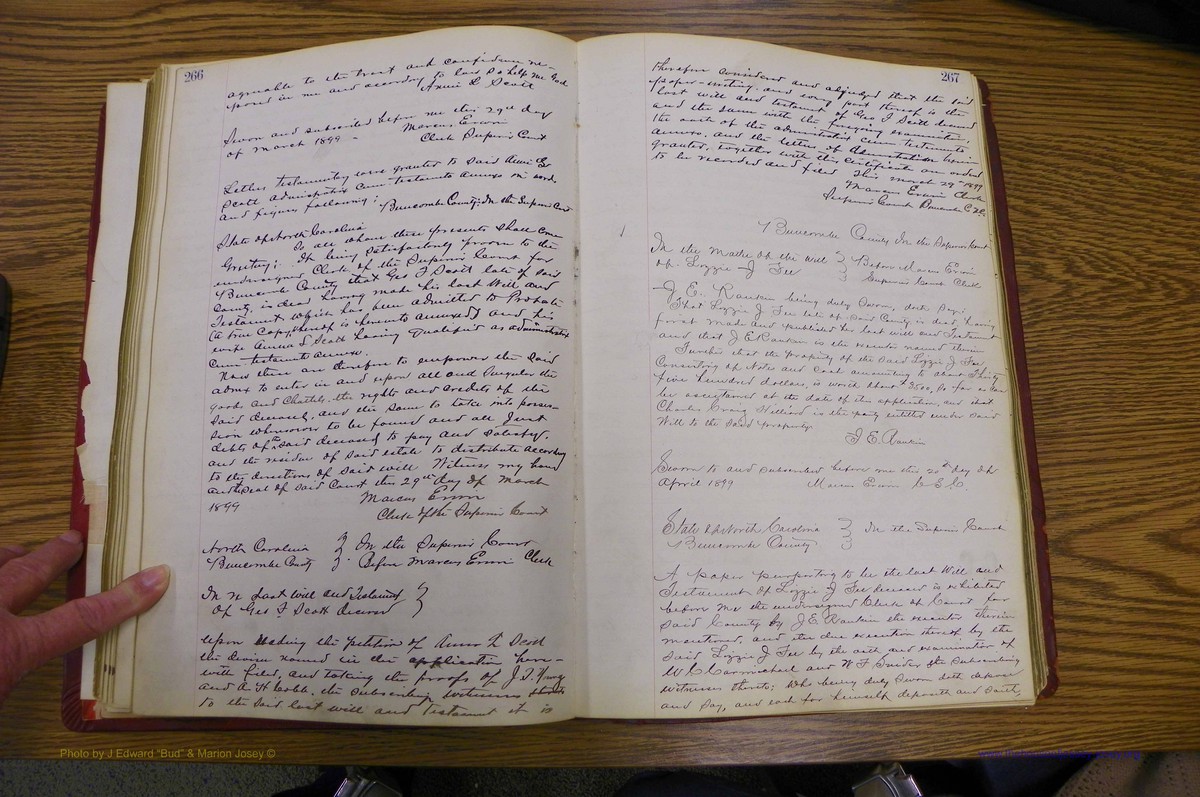 266
agreable to the trust and confidence re-
posed in me and according to law So help me God
Annie L Scott
Sworn and subscribed before me this 29th day
of March 1899 - Marcus Erwin
Clerk Superior Court
Letters testamentary were granted to said Annie L
Scott administratrix cum-testamento annexo in words
and figures following:
State of North Carolina Buncombe County: In the Superior Court
To all whom these presents shall come
Greeting: It being satisfactorily proven to the
undersigned Clerk of the Superior Court for
Buncombe County that Geo F Scott late of said
County is dead having made his last Will and
Testament which has been admitted to Probate
(a true Copy thereof is hereunto annexed) and his
wife Annie L Scott having qualified as administratrix
Cum testamento annexo.
Now these are therefore to empower the said
admx to enter in and upon all and singular the
goods and Chattels, the rights and credits of the
said deceased, and the same to take into posses-
sion whensoever to be found and all Just
debts of the said deceased to pay and satisfy,
and the residue of said estate to distribute according
to the directions of said will Witness my hand
and the seal of said Court this 29th day of March
1899
Marcus Erwin
Clerk of the Superior Court
North Carolina In the Superior Court
Buncombe County Before Marcus Erwin Clerk
In re Last will and Testament
Of Geo F Scott deceased
Upon reading the petition of Annie L Scott
the devisee named in the application here-
with filed, and taking the proofs of J. T.
and A H Cobb, the subscribing witnesses thereto
to the said last will and Testament it is
267
therefore considered and adjudged that the said
paper-writing and every part thereof is the
last will and testament of Geo F Scott deceased
and the same with the foregoing examination,
the oath of the administratrix cum testamento
annexo, and the letters of Administration herein
granted, together with this Certificate are ordered
to be recorded and filed This March 29th 1899
Marcus Erwin Clerk
Superior Court Buncombe Co NC
Buncombe County In the Superior Court
In the Matter of the Will Before Marcus Erwin
of Lizzie J Fee Superior Court Clerk
J E. Rankin being duly Sworn, doth Say:
That Lizzie J Fee late of said County is dead, having
first made and published her last will and Testament
and that J E Rankin is the executor named therein
Further that the property of the said Lizzie J Fee
Consisting of Notes and Cash amounting to about Thirty
five hundred dollars, is worth about $3500, so far as can
be ascertained at the date of this application, and that
Charles Craig Hilliard is the party entitled under said
Will to the said property.
J E. Rankin
Sworn to and subscribed before me this 20th day of
April 1899 Marcus Erwin C S C.
State of North Carolina In the Superior Court
Buncombe County.
A paper purporting to be the last Will and
Testament of Lizzie J Fee deceased is exhibited
before me the undersigned Clerk of Court for
said County by J E Rankin the executor therein
mentioned, and the due execution thereof by the
said Lizzie J Fee by the oath and examination of
W C Carmichael and W F Snider the subscribing
witnesses thereto; Who being duly sworn doth depose
and say, and each for himself deposeth and saith,
Photo by J Edward "Bud" & Marion Josey ©